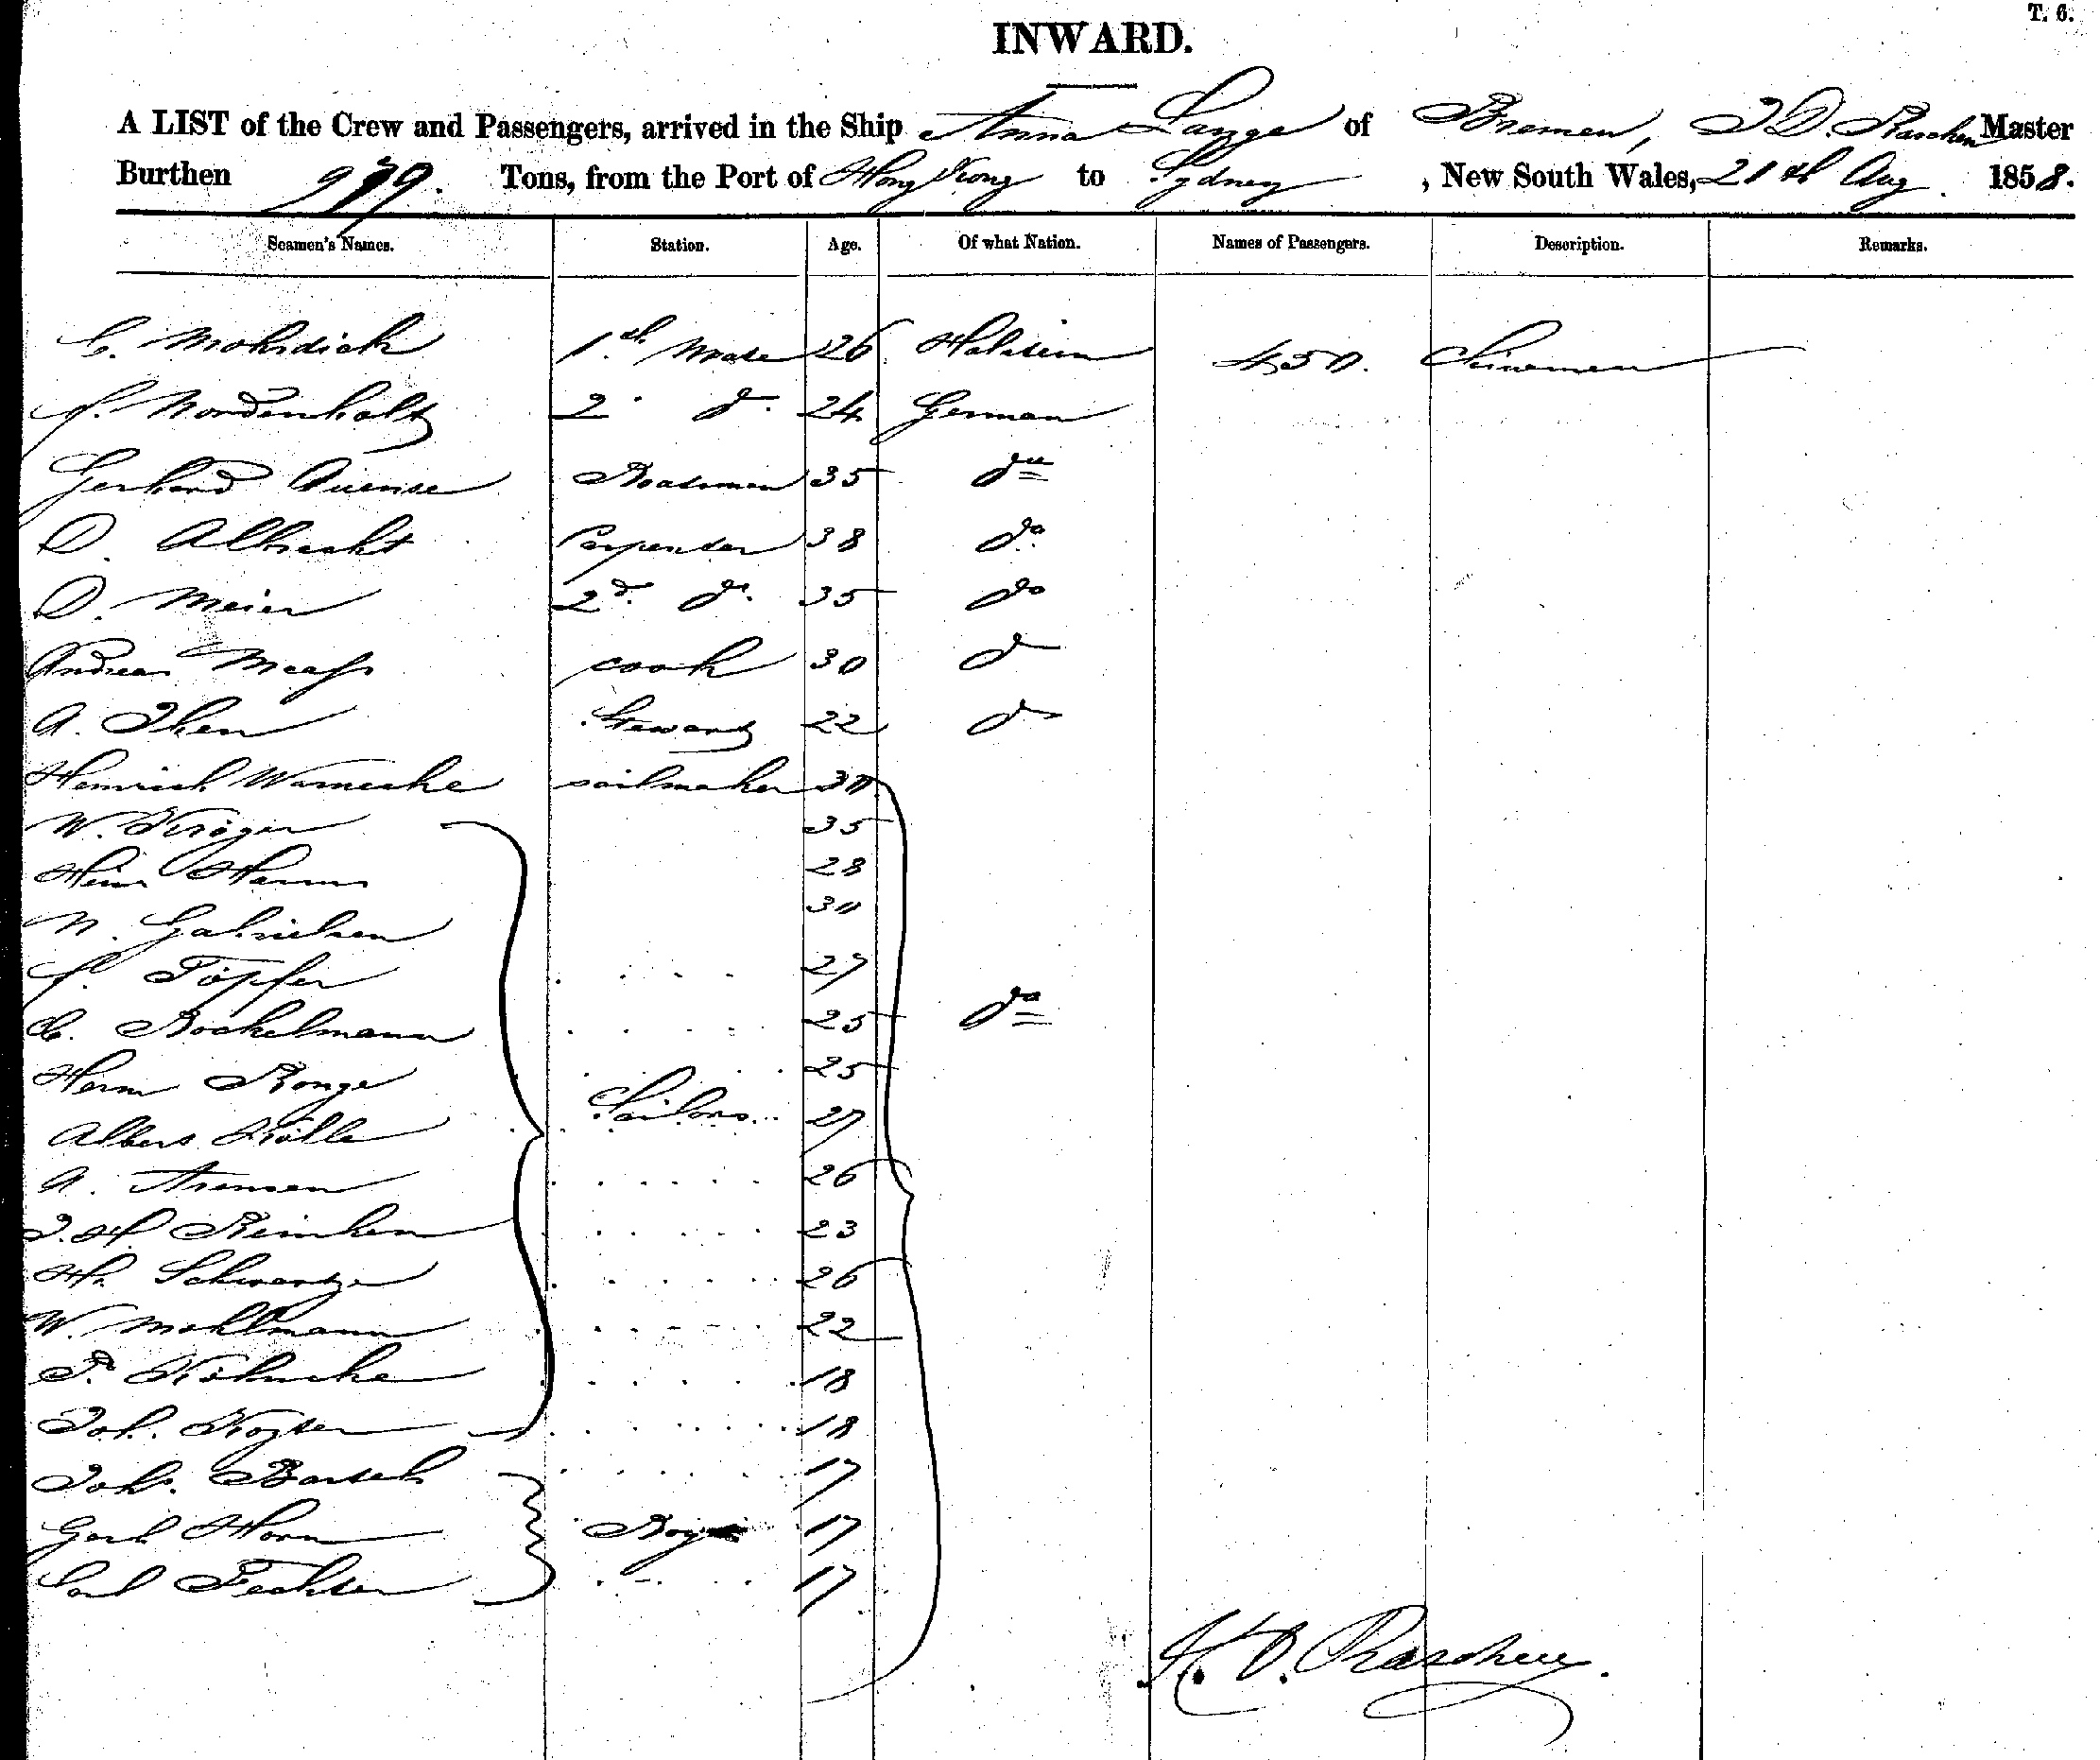 T. 6.
INWARD.
A LIST of the Crew and Passengers, arrived in the Ship Anna Lange of Bremen, J D. Raschen Master
Burthen 979. Tons, from the Port of Hong Kong to Sydney, New South Wales, 21th Aug. 1858.
Seamen's Names. Station. Age. Of what Nation. Names of Passengers. Description. Remarks.
C. Mohrdiek 1.th Mate 26 Holstein 450. Chinamen
f. Nordenholtz 2. do. 24 German
Gerhard Boatsman 35 do
D. Albrecht Carpenter 38 do
D. Meier 2d. do. 35 do
Andreas Meass cook 30 do
A. Iken Steward 22 do
Heinrich Warnecke sailmaker 30
W. Kröger 35
Heinr Harms 28
N. Gabrielsen 30
f. Töpfer 27
C. Bockelmann 25 do
Herm Ronge 25
Albert Kölle Sailors 27
A. Arensen 26
J. H. Reinken 23
Hr. Schwartze 26
W. Mohlmann 22
P. Köhncke 18
Joh. Koster 18
Joh. Bartsch 17
Gerh Horn Boys 17
Carl Fechter 17
J. D. Raschen.